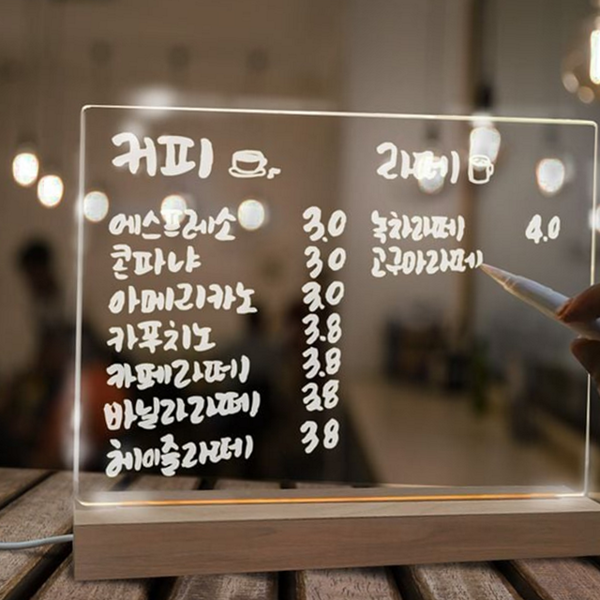 커피
에스프레소 3.0
콘파냐 3.0
아메리카노 3.0
카푸치노 3.8
카페라떼 3.8
바닐라라떼 3.8
헤이즐라떼 3.8
라떼
녹차라떼 4.0
고구마라떼